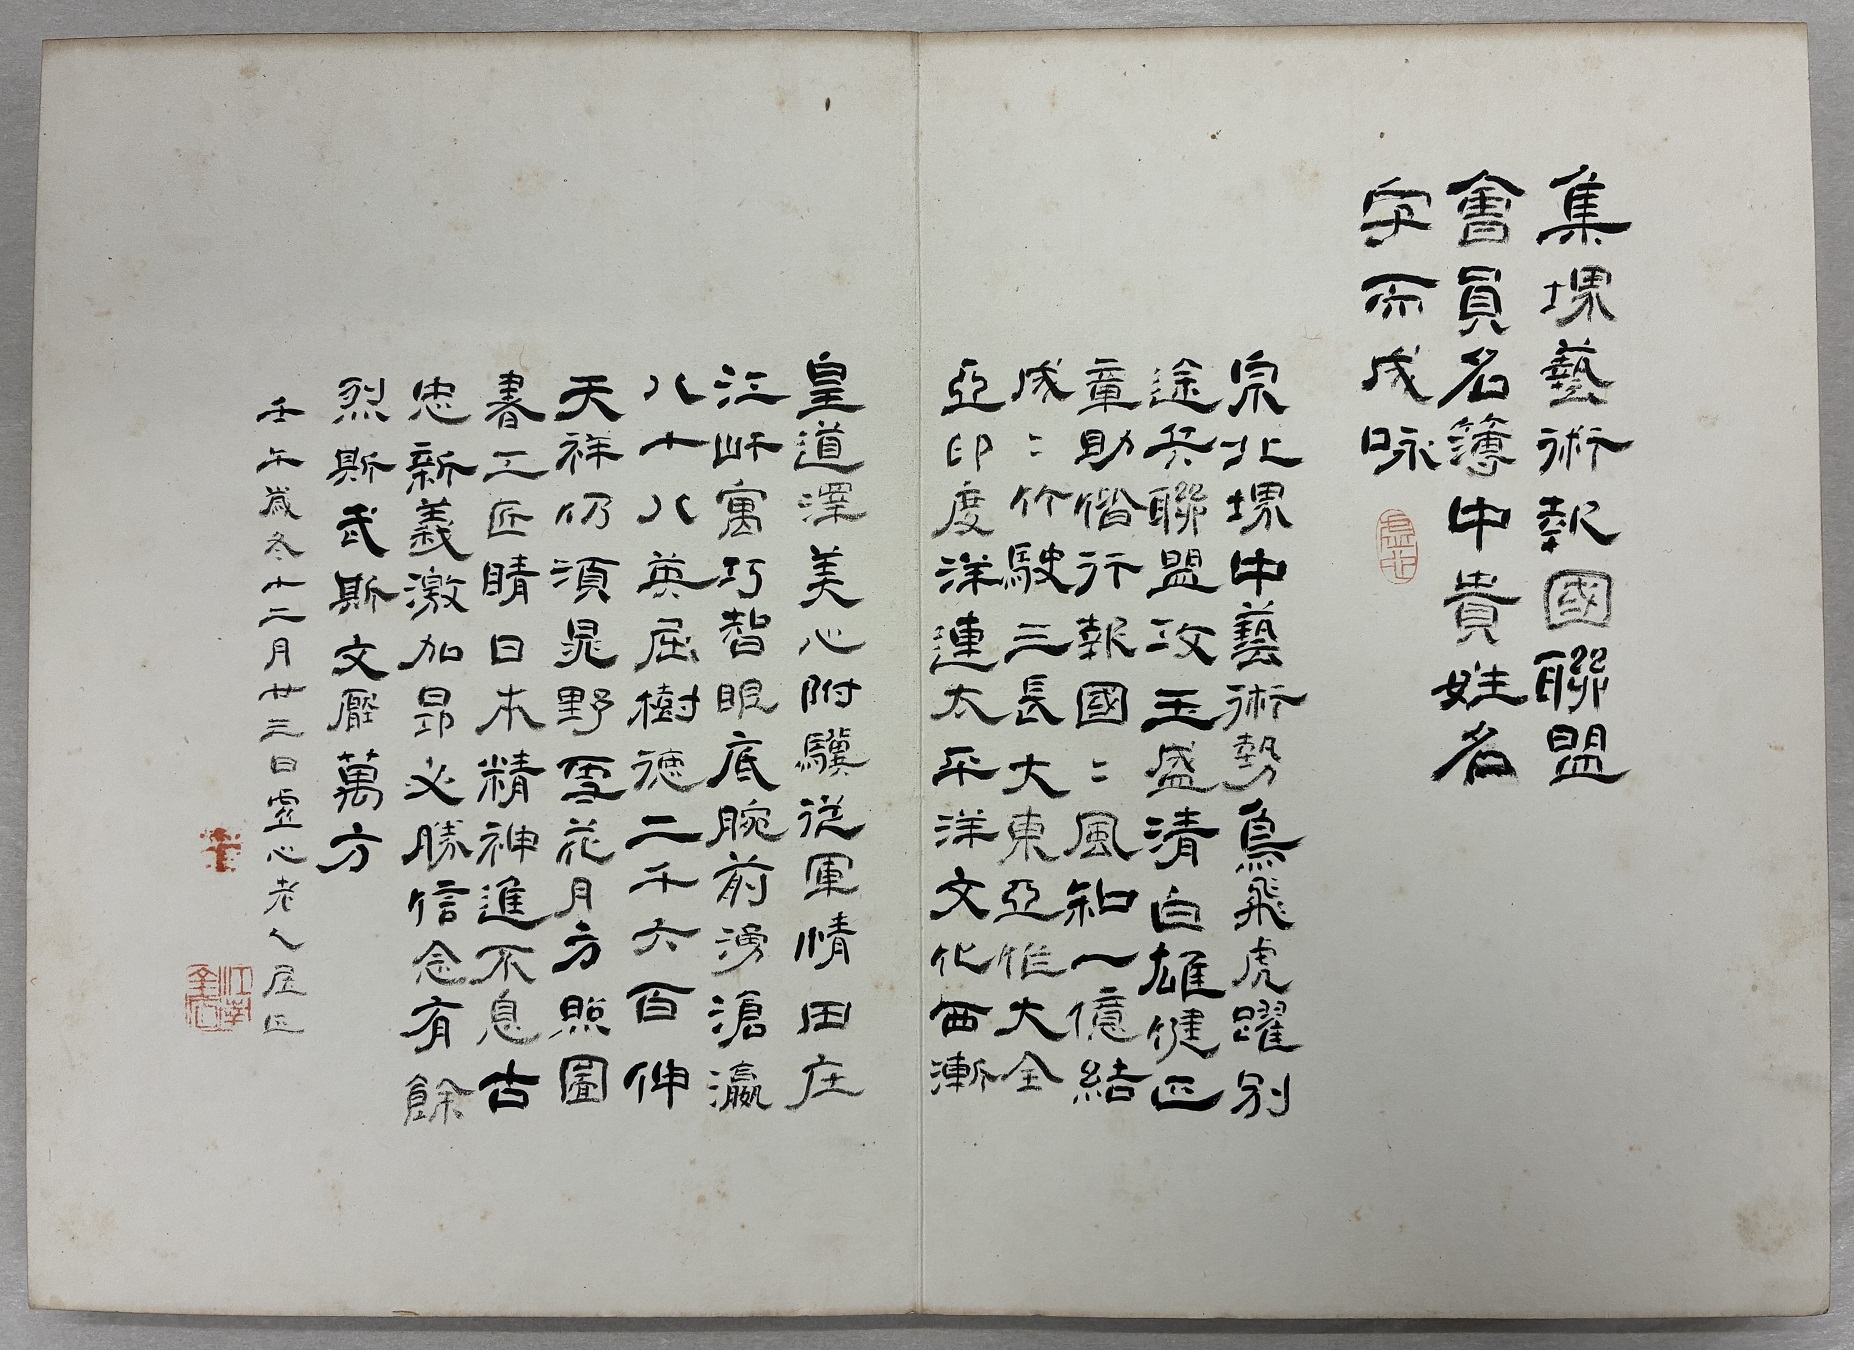 集堺藝術報國聯盟
會員名簿中貴姓名
字而成咏
宗北堺中藝術勢鳥飛虎躍別
途兵聯盟攻玉盛清白雄健正
章助偕行報國〻風和一億結
成〻竹駛三長大東亞惟大全
亞印度洋連太平洋文化西漸
皇道澤美心附驥從軍情田庄
江畔寓巧智眼底腕前湧滄瀛
八十八英屈樹徳二千六百伸
天祥仍須晁野雪花月方照圖
書工匠睛日本精神進不息古
忠新義激加昂必勝信念有餘
烈斯武斯文壓萬方
壬午歲冬十二月廿三日虛心老人屋正